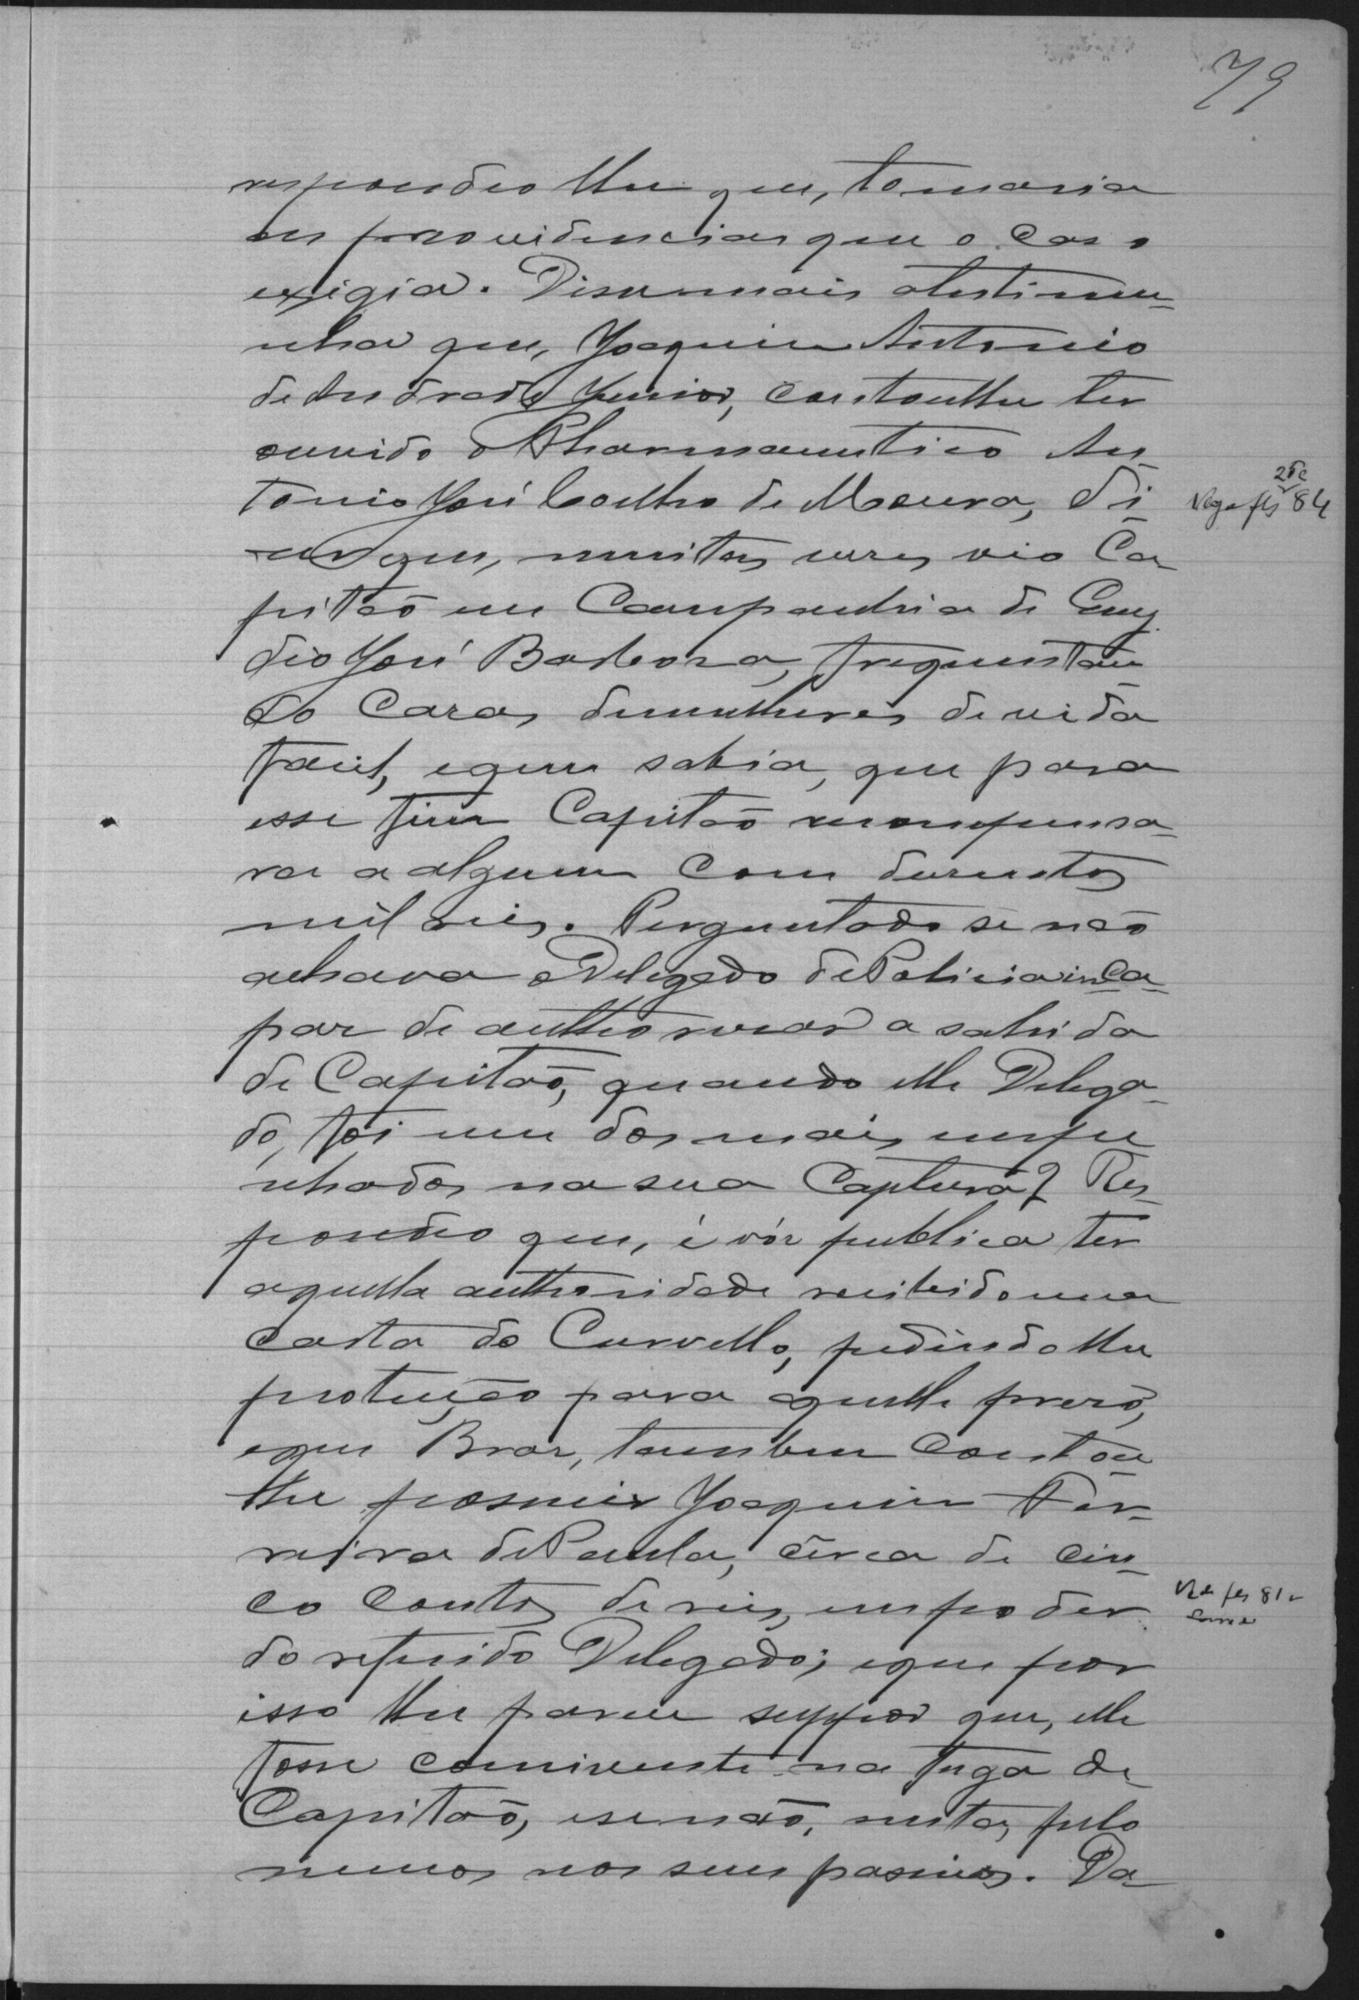 79
respondeo lhe que, tomaria
as providencias que o caso
exigia. Disse mais a testimu-
nha que, Joaquim Antonio
de Andrade Junior, contou lhe ter
ouvido o Pharmaceutico An-
tonio José Coelho de Moura, di-
zer que, muitas vezes vio Ca-
pitão em Companhia de Emy-
dio José Barbosa, frequentan-
do Casas de mulheres de vida
facil, e quem sabia, que para
esse fim Capitão recompensa-
va a alguem com duzentos
mil reis. Perguntado se não
achava o Delegado de Policia inca-
paz de authorisar a sahida
de Capitão, quando elle Delega-
do, foi um dos mais empe
nhados na sua Captura? Res-
pondeo que, é vóz publica ter
aquella authoridade recibido uma
Carta do Curvello, pedindo lhe
proteição para aquelle prezo,
e que Braz, tambem Contou
lhe possuir Joaquim Fer-
reira de Paula, cerca de cin-
co Contos de reis, em poder
do referido Delegado; e que por
isso lhe parece suppor que, elle
fosse connivente na fuga de
Capitão, e se não, nesta, pelo
menos nos seus passeios. Da-
Veja fls 84
Vide fls 81 v